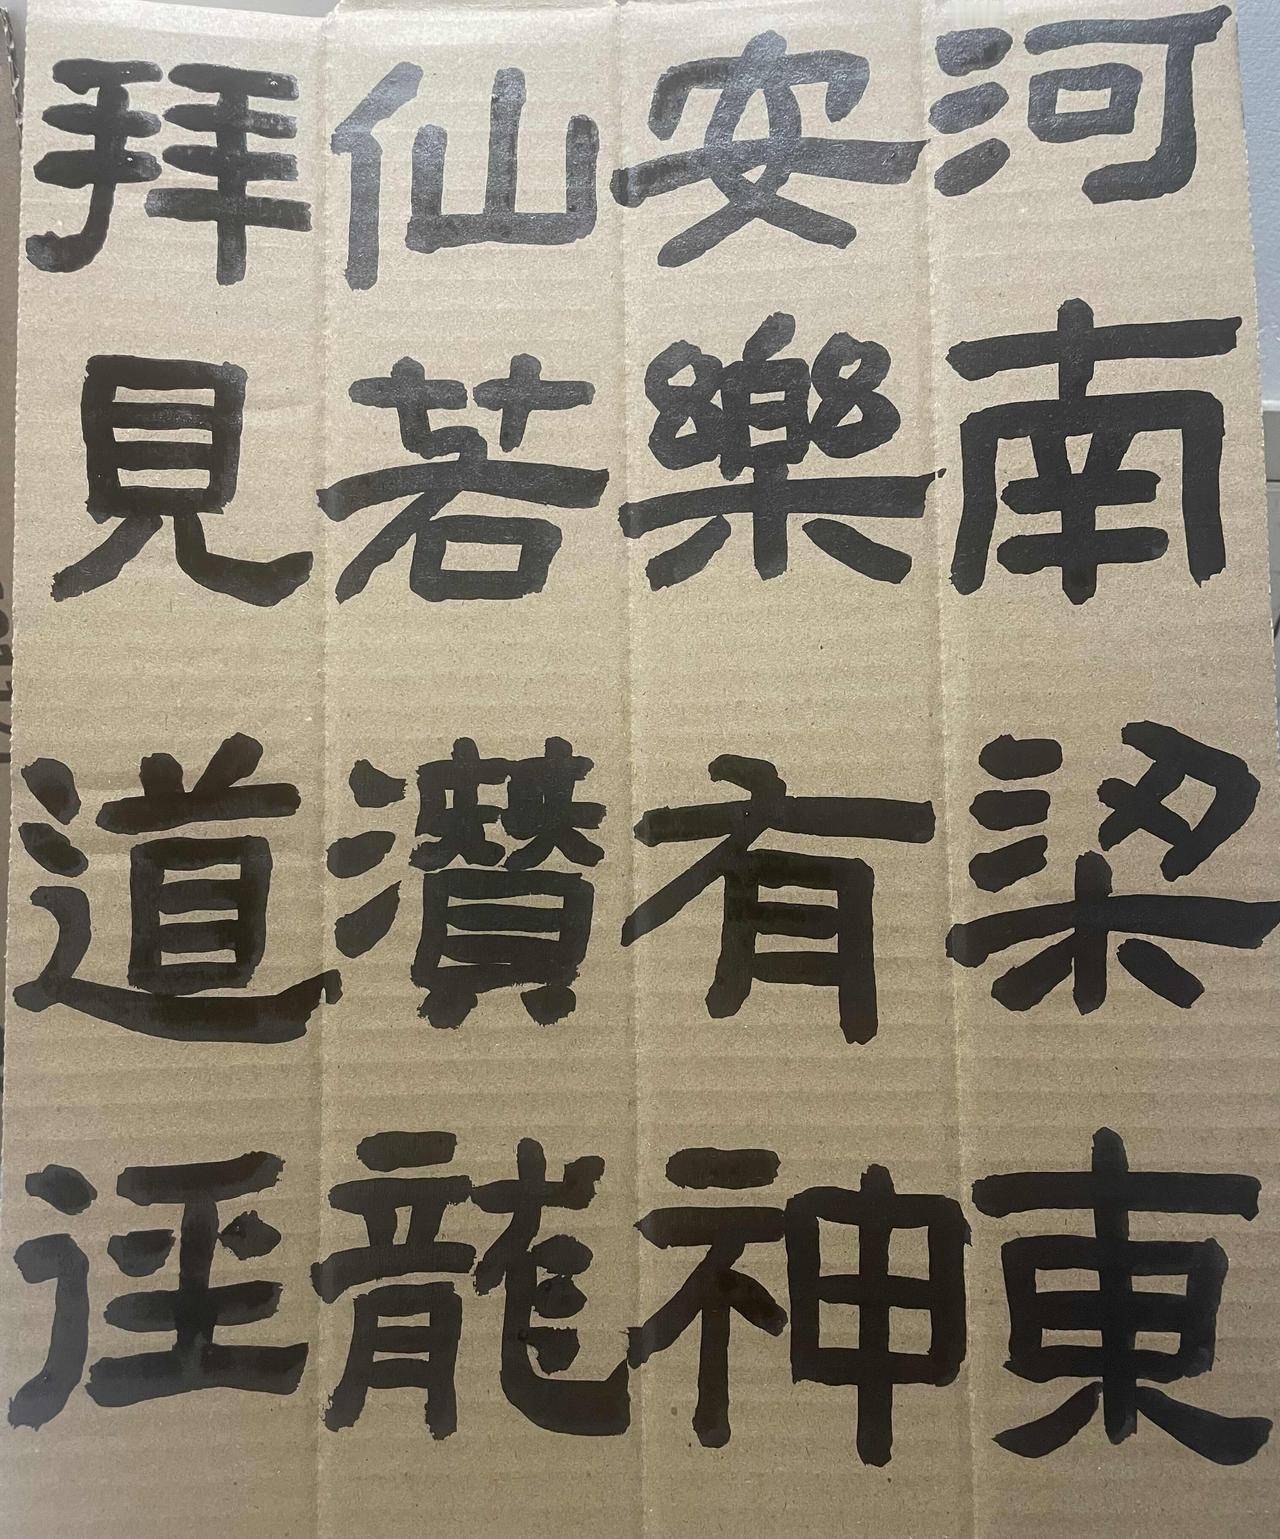 河南梁東
安樂有神
仙若濽龍
拜見道